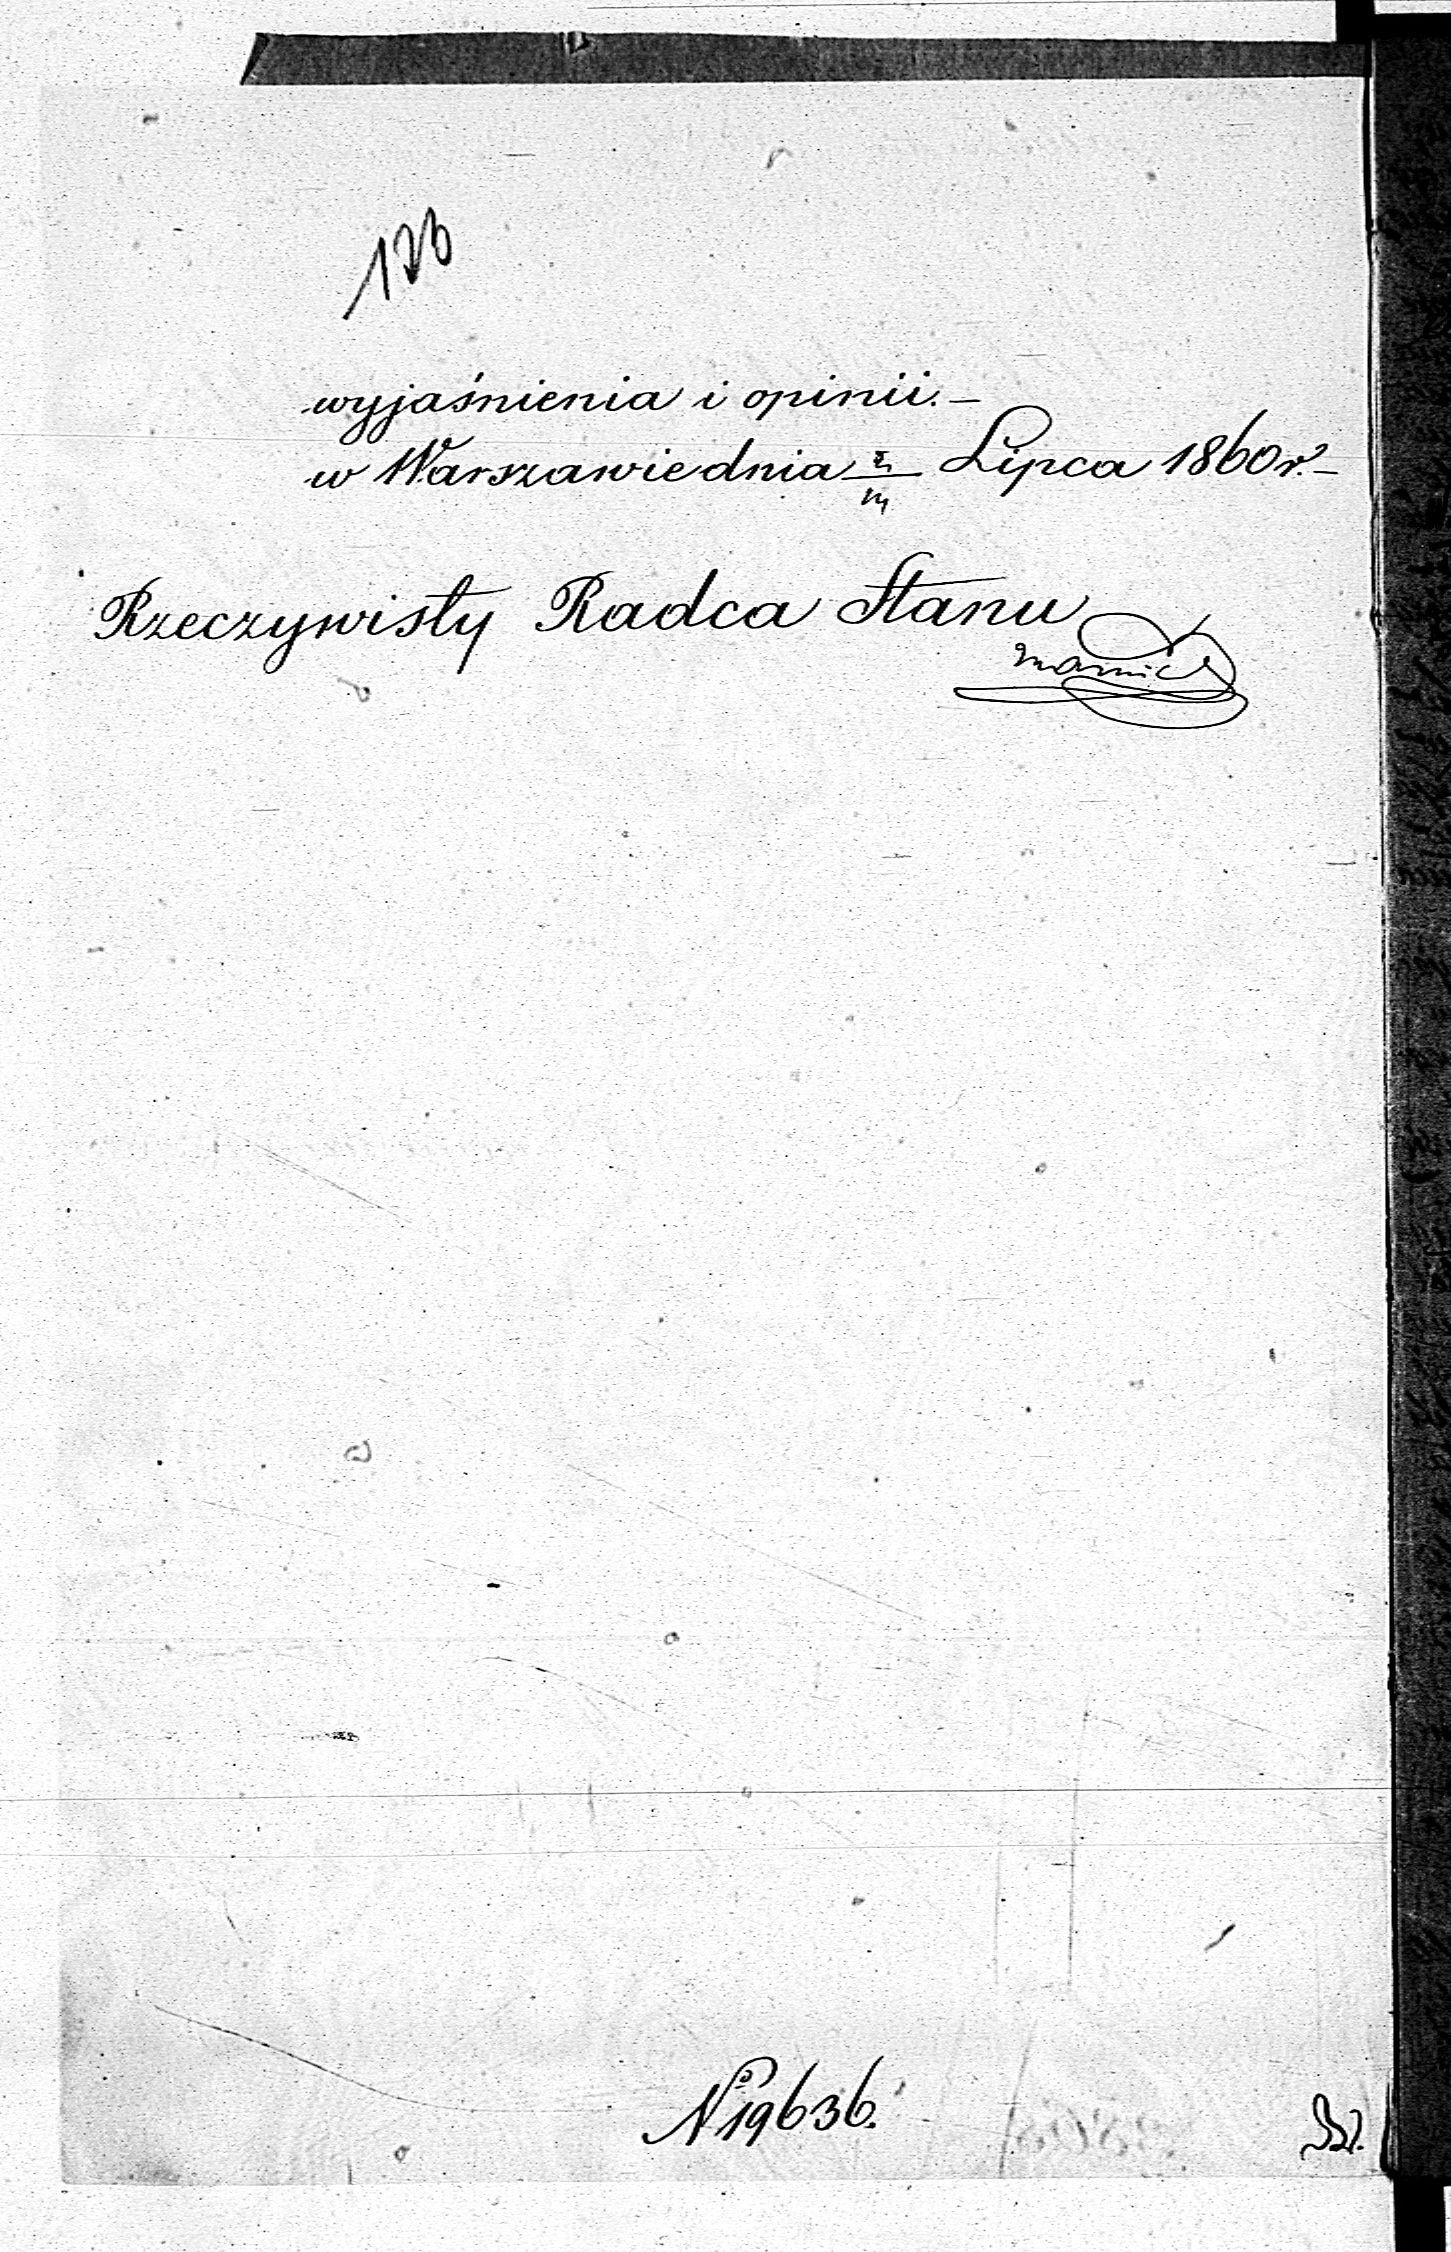 wyjaśnienia i opinii.—
w Warszawie dnia Lipca 1860 r.—
Rzeczywisty Radca Stanu
No 19636.